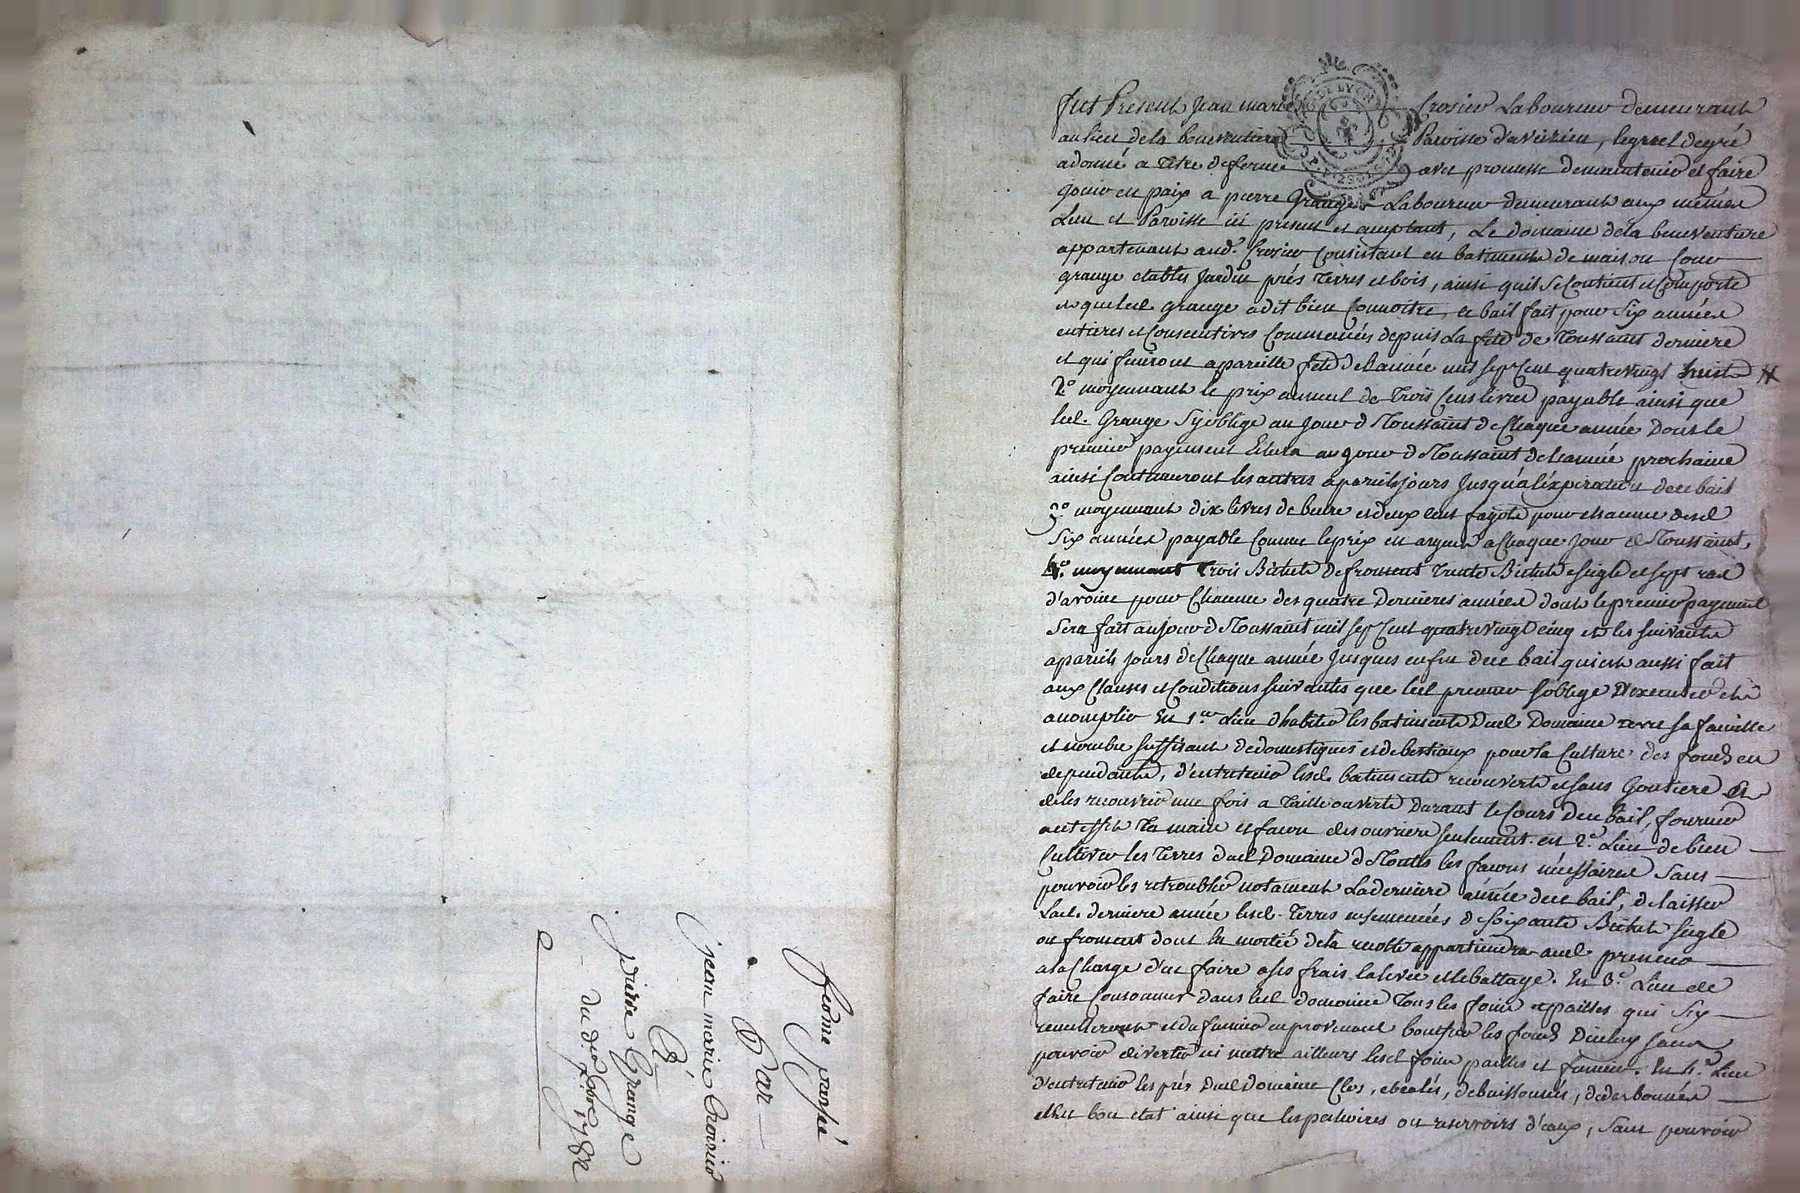 ferme passé
Par
jean marie Crosier
A
pierre Grange
du 1782
fut Present Jean marie Crosier Laboureur demeurant
au lieu de la boneventure Paroisse d'aveizieu, lequel de gré
a donné a titre de ferme avec promesse de maintenir et faire
jouir en paix a pierre Grange Laboureur demeurant aux mêmes
Lieu et Paroisse ici present et acceptant, Le domaine de la beneventure
appartenant aud. Crosier Consistant en batiments de maison Cour
grange etables Jardin prés Terres et bois, ainsi quil se Contient et Comporte
et que led. grange a dit bien Connoitre, ce bail fait pour Six années
entieres et Consecutives Commencées depuis La fete de Toussaint derniere
et qui finiront a pareille fete de L'année mil sept Cent quatre vingt huit
2.o moyennant le prix annuel de Trois Cens livres payable ainsi que
led. Grange S'y oblige au jour de Toussaint de Chaque année Dont le
premier payement Echera au jour de Toussaint de L'année prochaine
ainsi Continueront les autres a pareils jours Jusqu'a l'expiration de ce bail
3.o moyennant dix livres de beure et deux Cent fagots pour chacune desd.
Six années payable Comme le prix en argent a Chaque jour de Toussaint,
4.o moyennant Trois Bichets de froment Trente Bichets seigle et sept ras
d'avoine pour Chacune des quatre Dernieres années dont le premier payement
Sera fait au jour de Toussaint mil sept Cent quatre vingt Cinq et les suivants
a pareils jours de Chaque année Jusques en fin de ce bail qui est aussi fait
aux Clauses et Conditions suivantes que led. preneur s'oblige D'executer et
accomplir En 1.er Lieu d'habiter les batiments Dud. Domaine avec sa famille
et nombre suffisant de domestiques et de bestiaux pour la Culture des fonds en
dependants, d'entretenir lesd. batiments recouverts et sans Goutiere et
de les recouvrir une fois a Taille ouverte Durant le Cours de ce bail, fournir
a cet effet La main et facon des ouvriers seulement. en 2.e Lieu de bien
Cultiver les Terres dud. Domaine de Toutes les facons nécessaires Sans
pouvoir les retroubler notament La derniere année de ce bail, de laisser
Lad. derniere année lesd. Terres ensemencées de soixante Bichets seigle
ou froment dont La moitié de la recolte appartiendra aud. preneur
a la Charge d'en faire a ses frais la levée et le battage. En 3.e Lieu de
faire Consommer dans led. domaine Tous les foins et pailles qui S'y
recuilleront et du fumier en provenant bonifier les fonds D'iceluy sans
pouvoir divertir ni mettre ailleurs lesd. foins pailles et fumier. En 4.e Lieu
d'entretenir les prés Dud. domaine Clos, debuissonnés,
et en bon etat ainsi que les reservoirs d'eaux, sans pouvoir